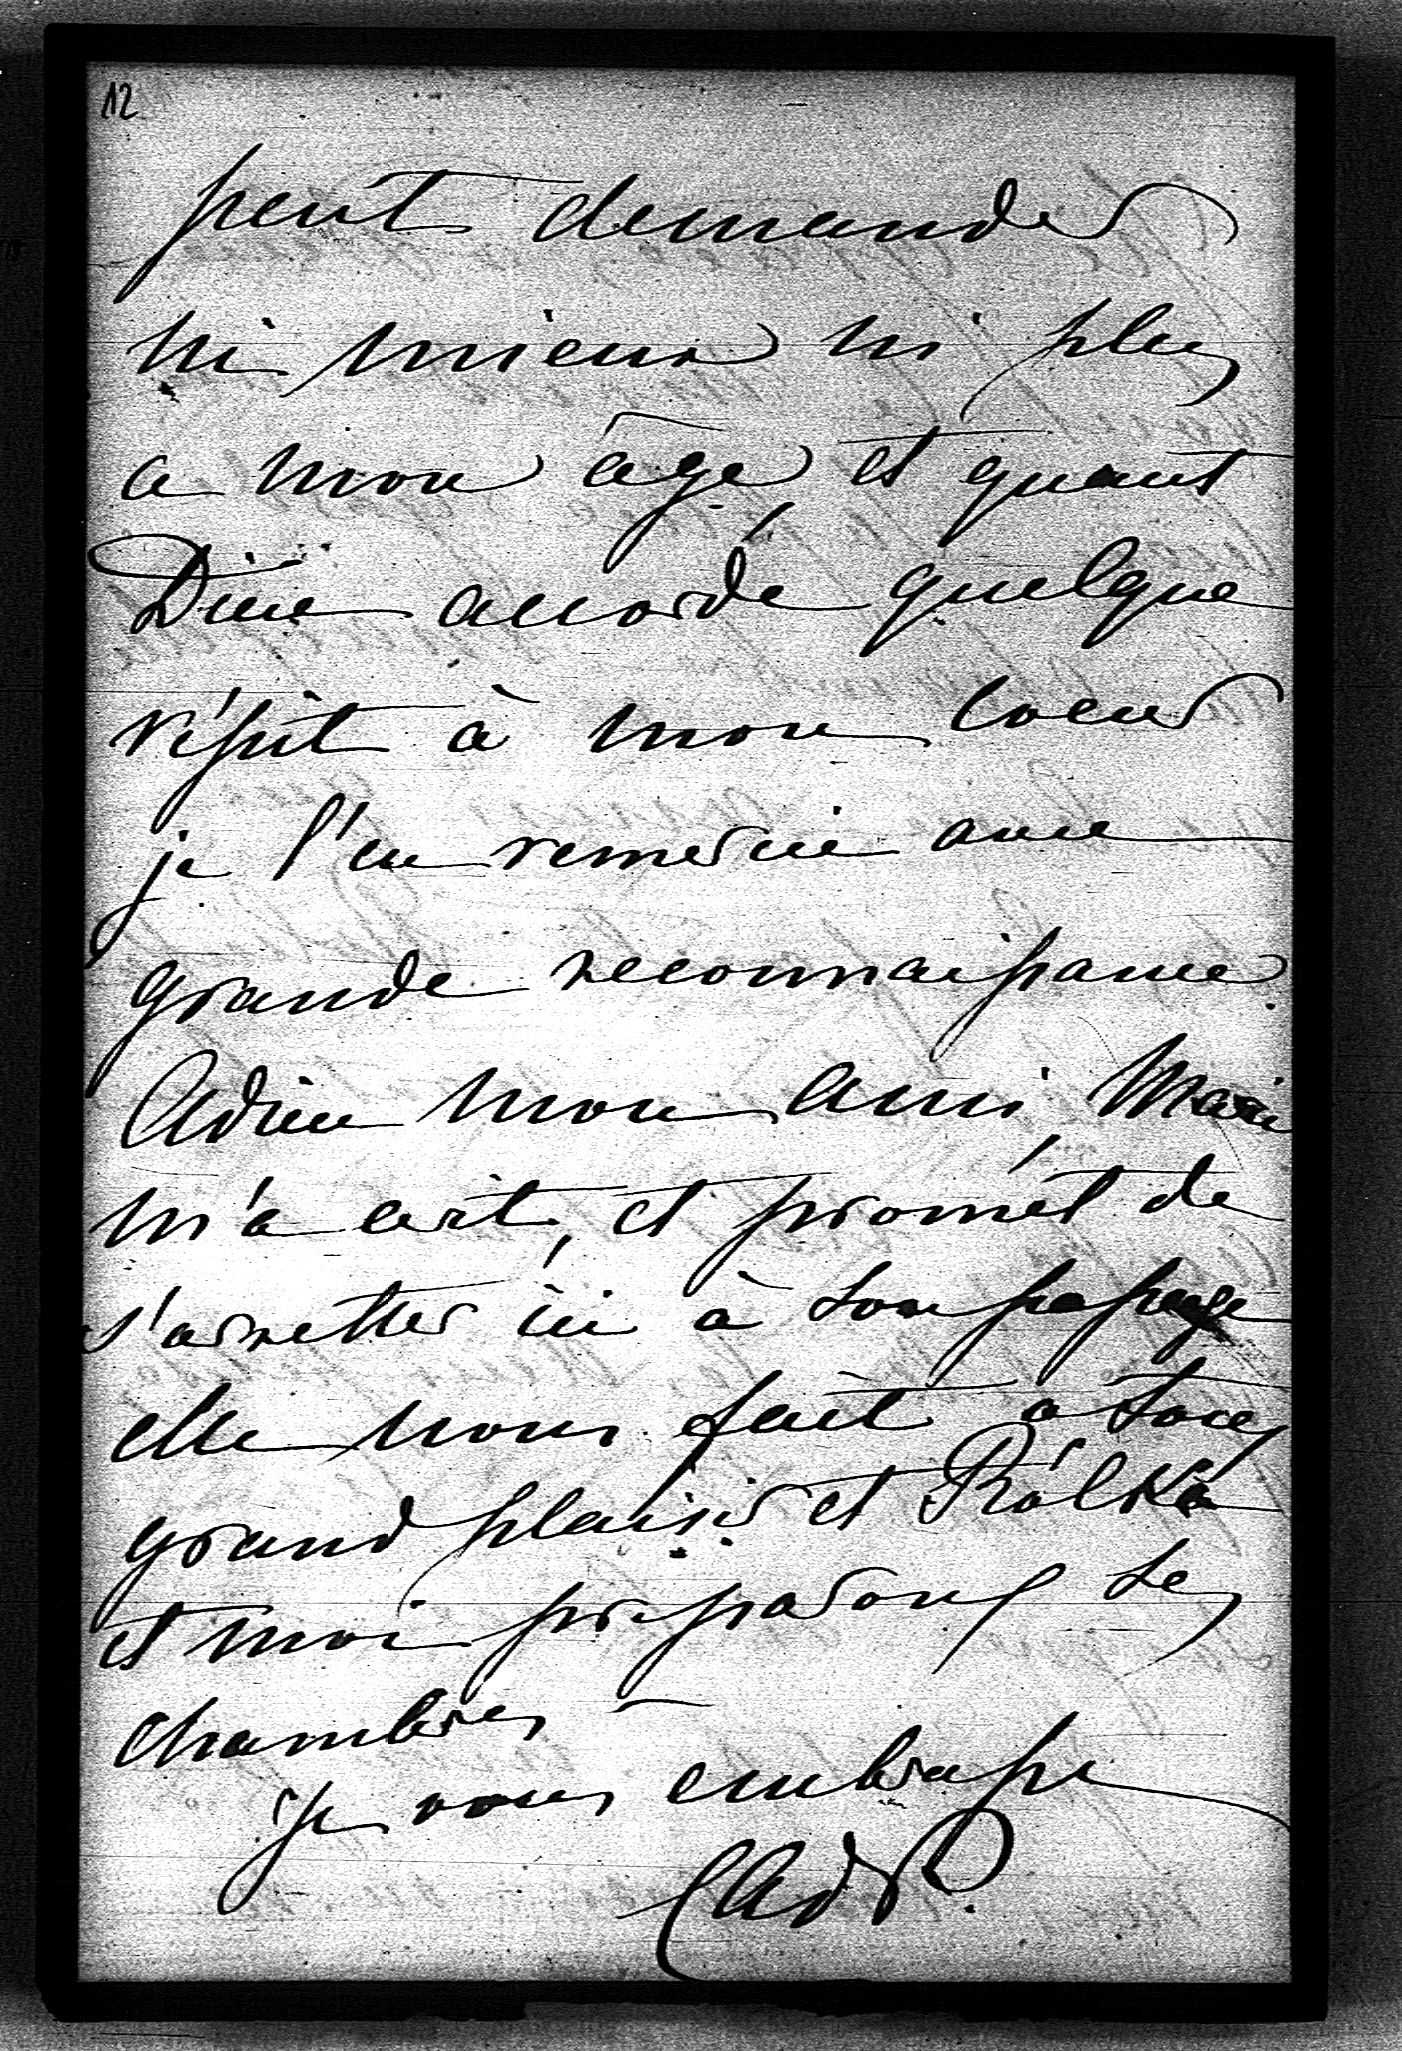 12
peut demander
ni mieux ni plus
a mon âge et quant
Dieu accorde quelque
répit à mon coeur
je l'en remercie avec
grande reconnaissance.
Adieu mon ami, Marie
m'a écrit, et promèt de
s'arretter ici à son passage
elle nous fait a tous
grand plaisir et Rólka
et moi préparons ses
chambres —
Je vous embrasse